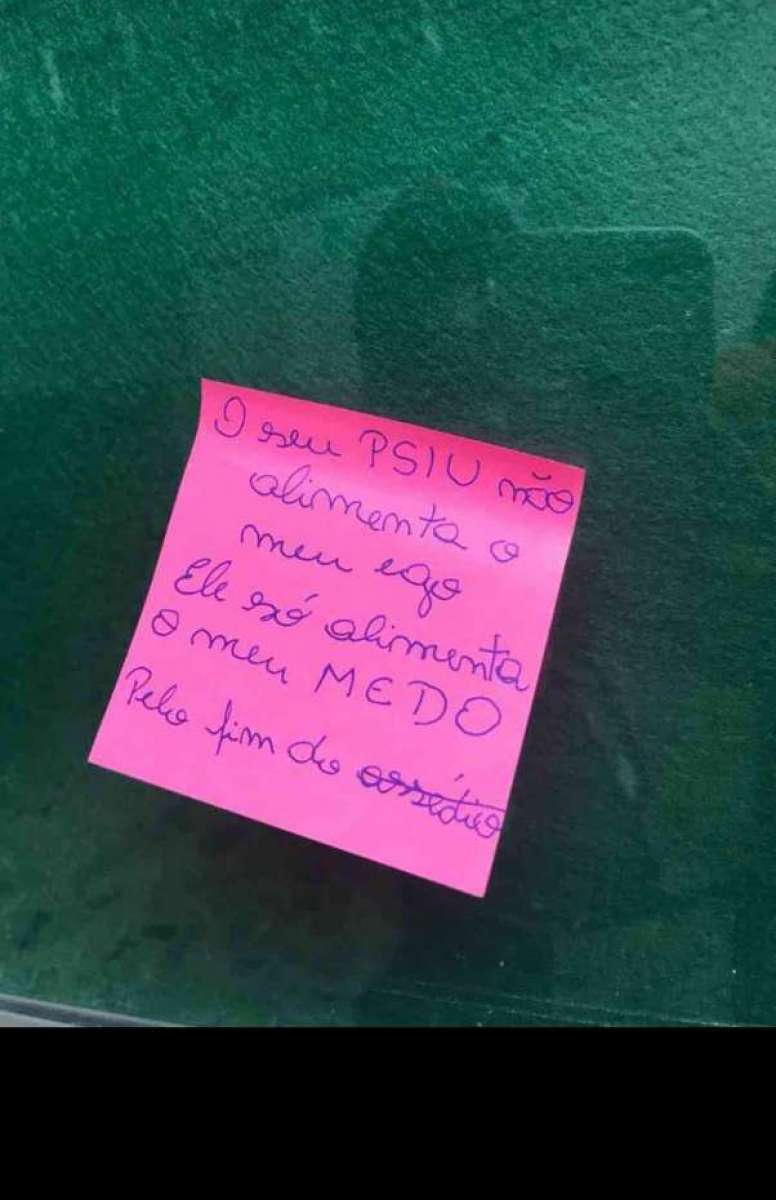 O seu PSIU não
alimenta o
meu ego
Ele só alimenta
o meu MEDO
Pelo fim do assédio